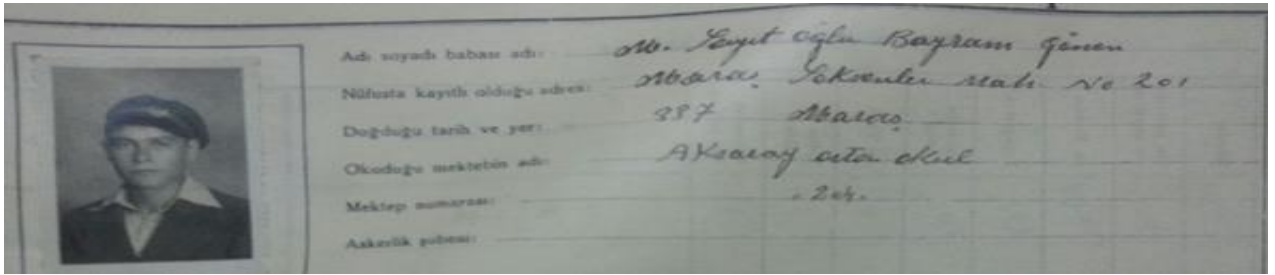 Adı soyadı babası adı: M. Seyit oğlu Bayram Gönen
Nüfusta kayıtlı olduğu adres: Maraş Şekerciler Mah. No 201
Doğduğu tarih ve yer: 337 Maraş
Okuduğu mektebin adı: Aksaray orta okul
Mektep numarası: 204.
Askerlik şubesi: